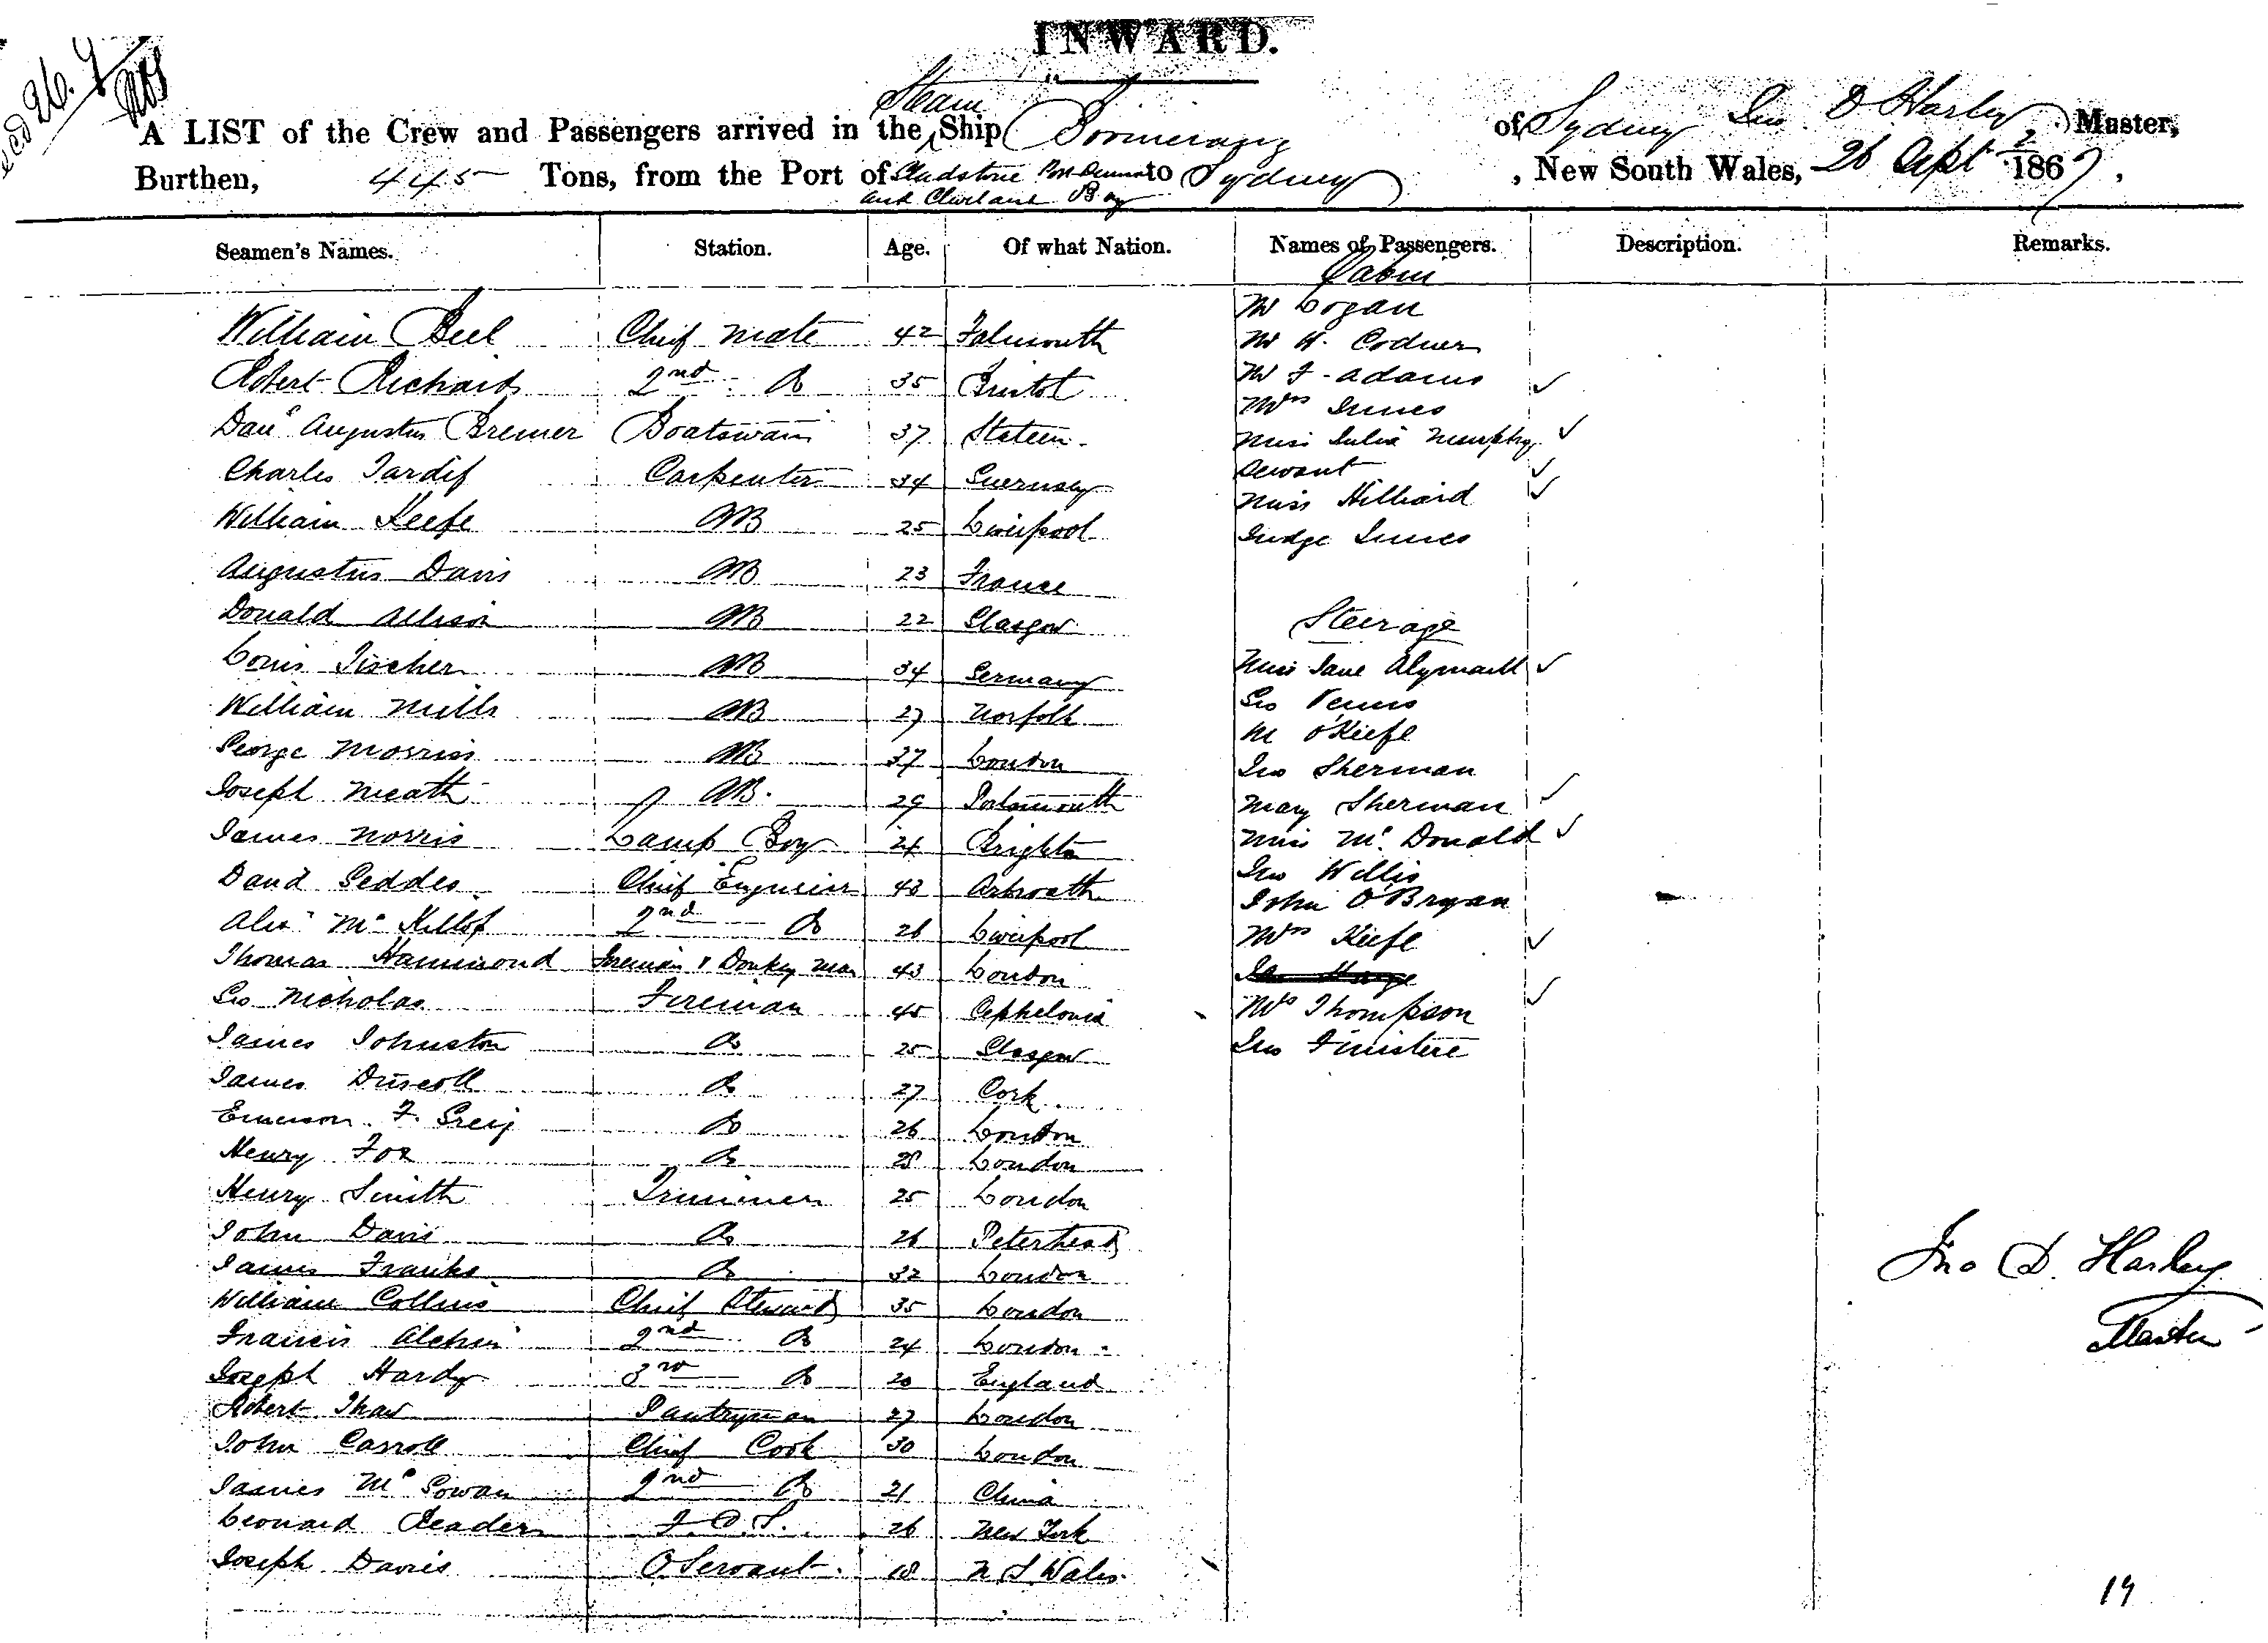 INWARD.
Steam
A LIST of the Crew and Passengers arrived in the Ship Boomerang of Sydney Jno D Harley Master,
Burthen, 445 Tons, from the Port of Gladstone Port Denison to Sydney, New South Wales, 26 Sept 1867,
and Cleveland Bay
Seamen's Names. Station. Age. Of what Nation. Names of Passengers. Description. Remarks.
Cabin
Mr Logan
William Bell Chief Mate 42 Falmouth Mr H. Codner
Robert Richards 2nd Do 35 Bristol Mr F. Adams ✓
Mrs Innes
Danl Augustus Bremer Boatswain 37 Stateen. Miss Julia Murphy ✓
Servant ✓
Charles Tardif Carpenter 34 Guernsey Miss Hilliard ✓
William Keefe AB 25 Liverpool Judge Innes
Augustus Davis AB 23 France
Donald Allison AB 22 Glasgow Steerage
Louis Fischer AB 34 Germany Miss Jane ✓
William Mills AB 27 Norfolk Geo Venus
M O'Kiefe
George Morriss AB 37 London Jno Sherman
Joseph Meath AB. 29 Portsmouth Mary Sherman ✓
James Norris Lamp Boy 24 Brighton Miss McDonald ✓
David Geddes Chief Engineer 43 Arbroath Jno Willis
John O'Bryan
Alexr McKillop 2nd Do 26 Liverpool Mrs Kiefe ✓
Thomas Hammond Fireman & Donkey Man 43 London
Geo Nicholas Fireman 45 Cephelonia Mrs Thompson ✓
James Johnston Do 25 Glasgow Jno Finistere
James Driscoll Do 27 Cork
Emerson F. Greig Do 26 London
Henry Fox Do 28 London
Henry Smith Trimmer 25 London
John Davis Do 26 Peterhead
James Franks Do 32 London
William Collins Chief Steward 35 London
Francis Alchin 2nd Do 24 London
Joseph Hardy 3rd Do 20 England
Robert Thaw Pantryman 27 London
John Carroll Chief Cook 30 London
James McGowan 2nd Do 21 China
Leonard Readers F.C.S. 26 New York
Joseph Davies O Servant. 18 N S Wales.
Jno D. Harley
Master
19